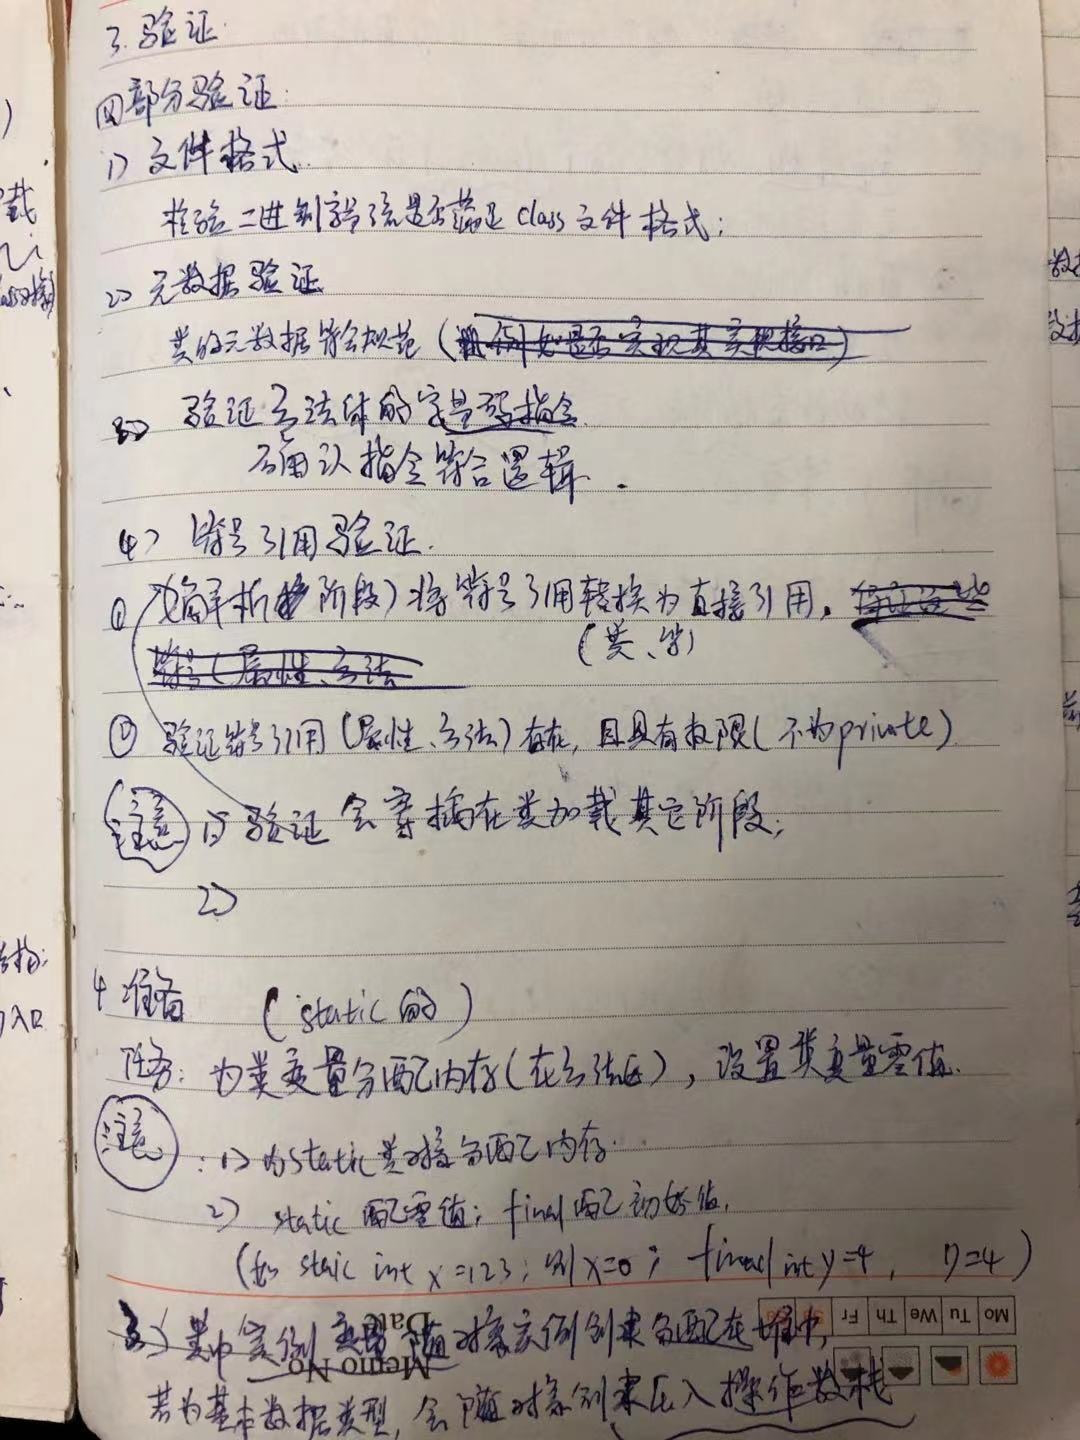 3.验证
四部分验证:
1) 文件格式
检验二进制字节流是否满足 Class 文件格式;
2) 元数据验证
类的元数据符合规范 (例如是否实现其实现接口)
3) 验证方法体的字节码指令
确认指令符合逻辑.
4) 符号引用验证.
① (解析阶段) 将符号引用转换为直接引用.
(类、
符号 (属性、方法
② 验证符号引用 (属性、方法) 存在, 且具有权限 (不为private)
注意 1) 验证会穿插在类加载其它阶段;
2)
4 准备 (static 的)
任务: 为类变量分配内存 (在方法区), 设置类变量零值.
注意: 1) 为static类对接分配内存.
2) static 配零值; final 配初始值,
(如 staic int x=123; 则 x=0; final int y=4, 则=4)
3) 类中实例变量随对象实例创建分配在堆中,
Date
Memo No
Mo Tu We Th Fr
若为基本数据类型, 会随对象创建压入操作数栈
数据
入口